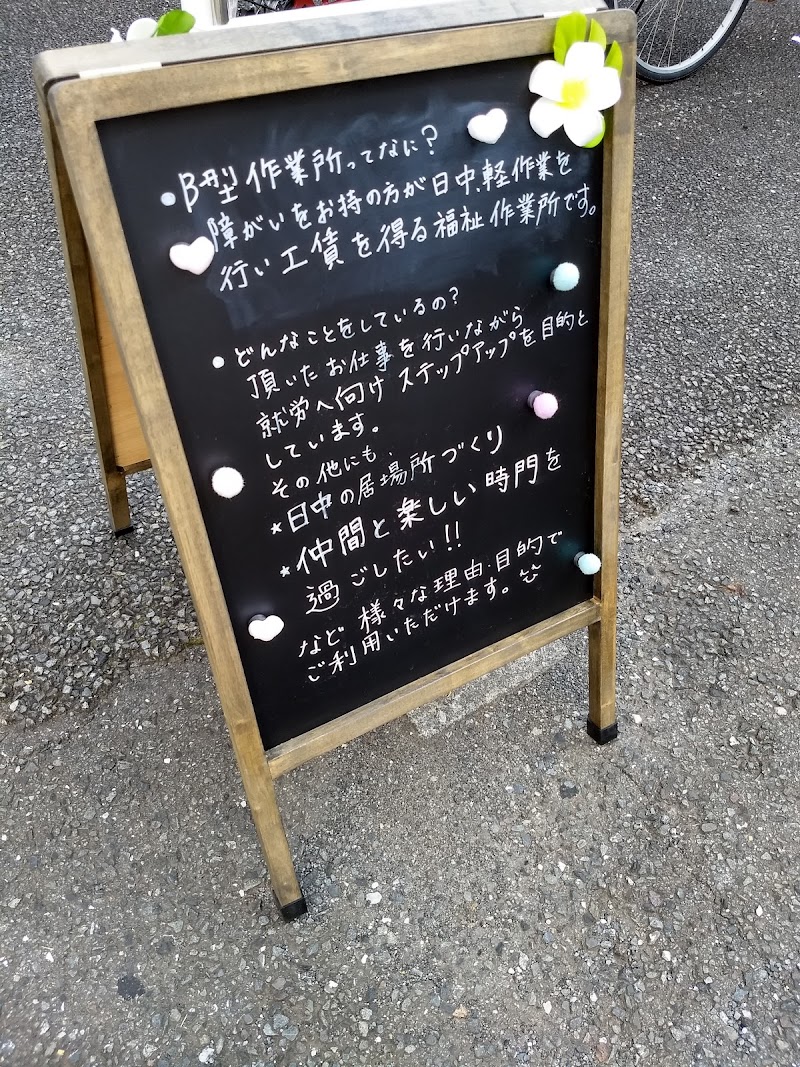 ・B型作業所ってなに?
障がいをお持の方が日中、軽作業を
行い工賃を得る福祉作業所です。
・どんなことをしているの?
頂いたお仕事を行いながら
就労へ向けステップアップを目的と
しています。
その他にも、
★日中の居場所づくり
★仲間と楽しい時間を
過ごしたい!!
など様々な理由・目的で
ご利用いただけます。